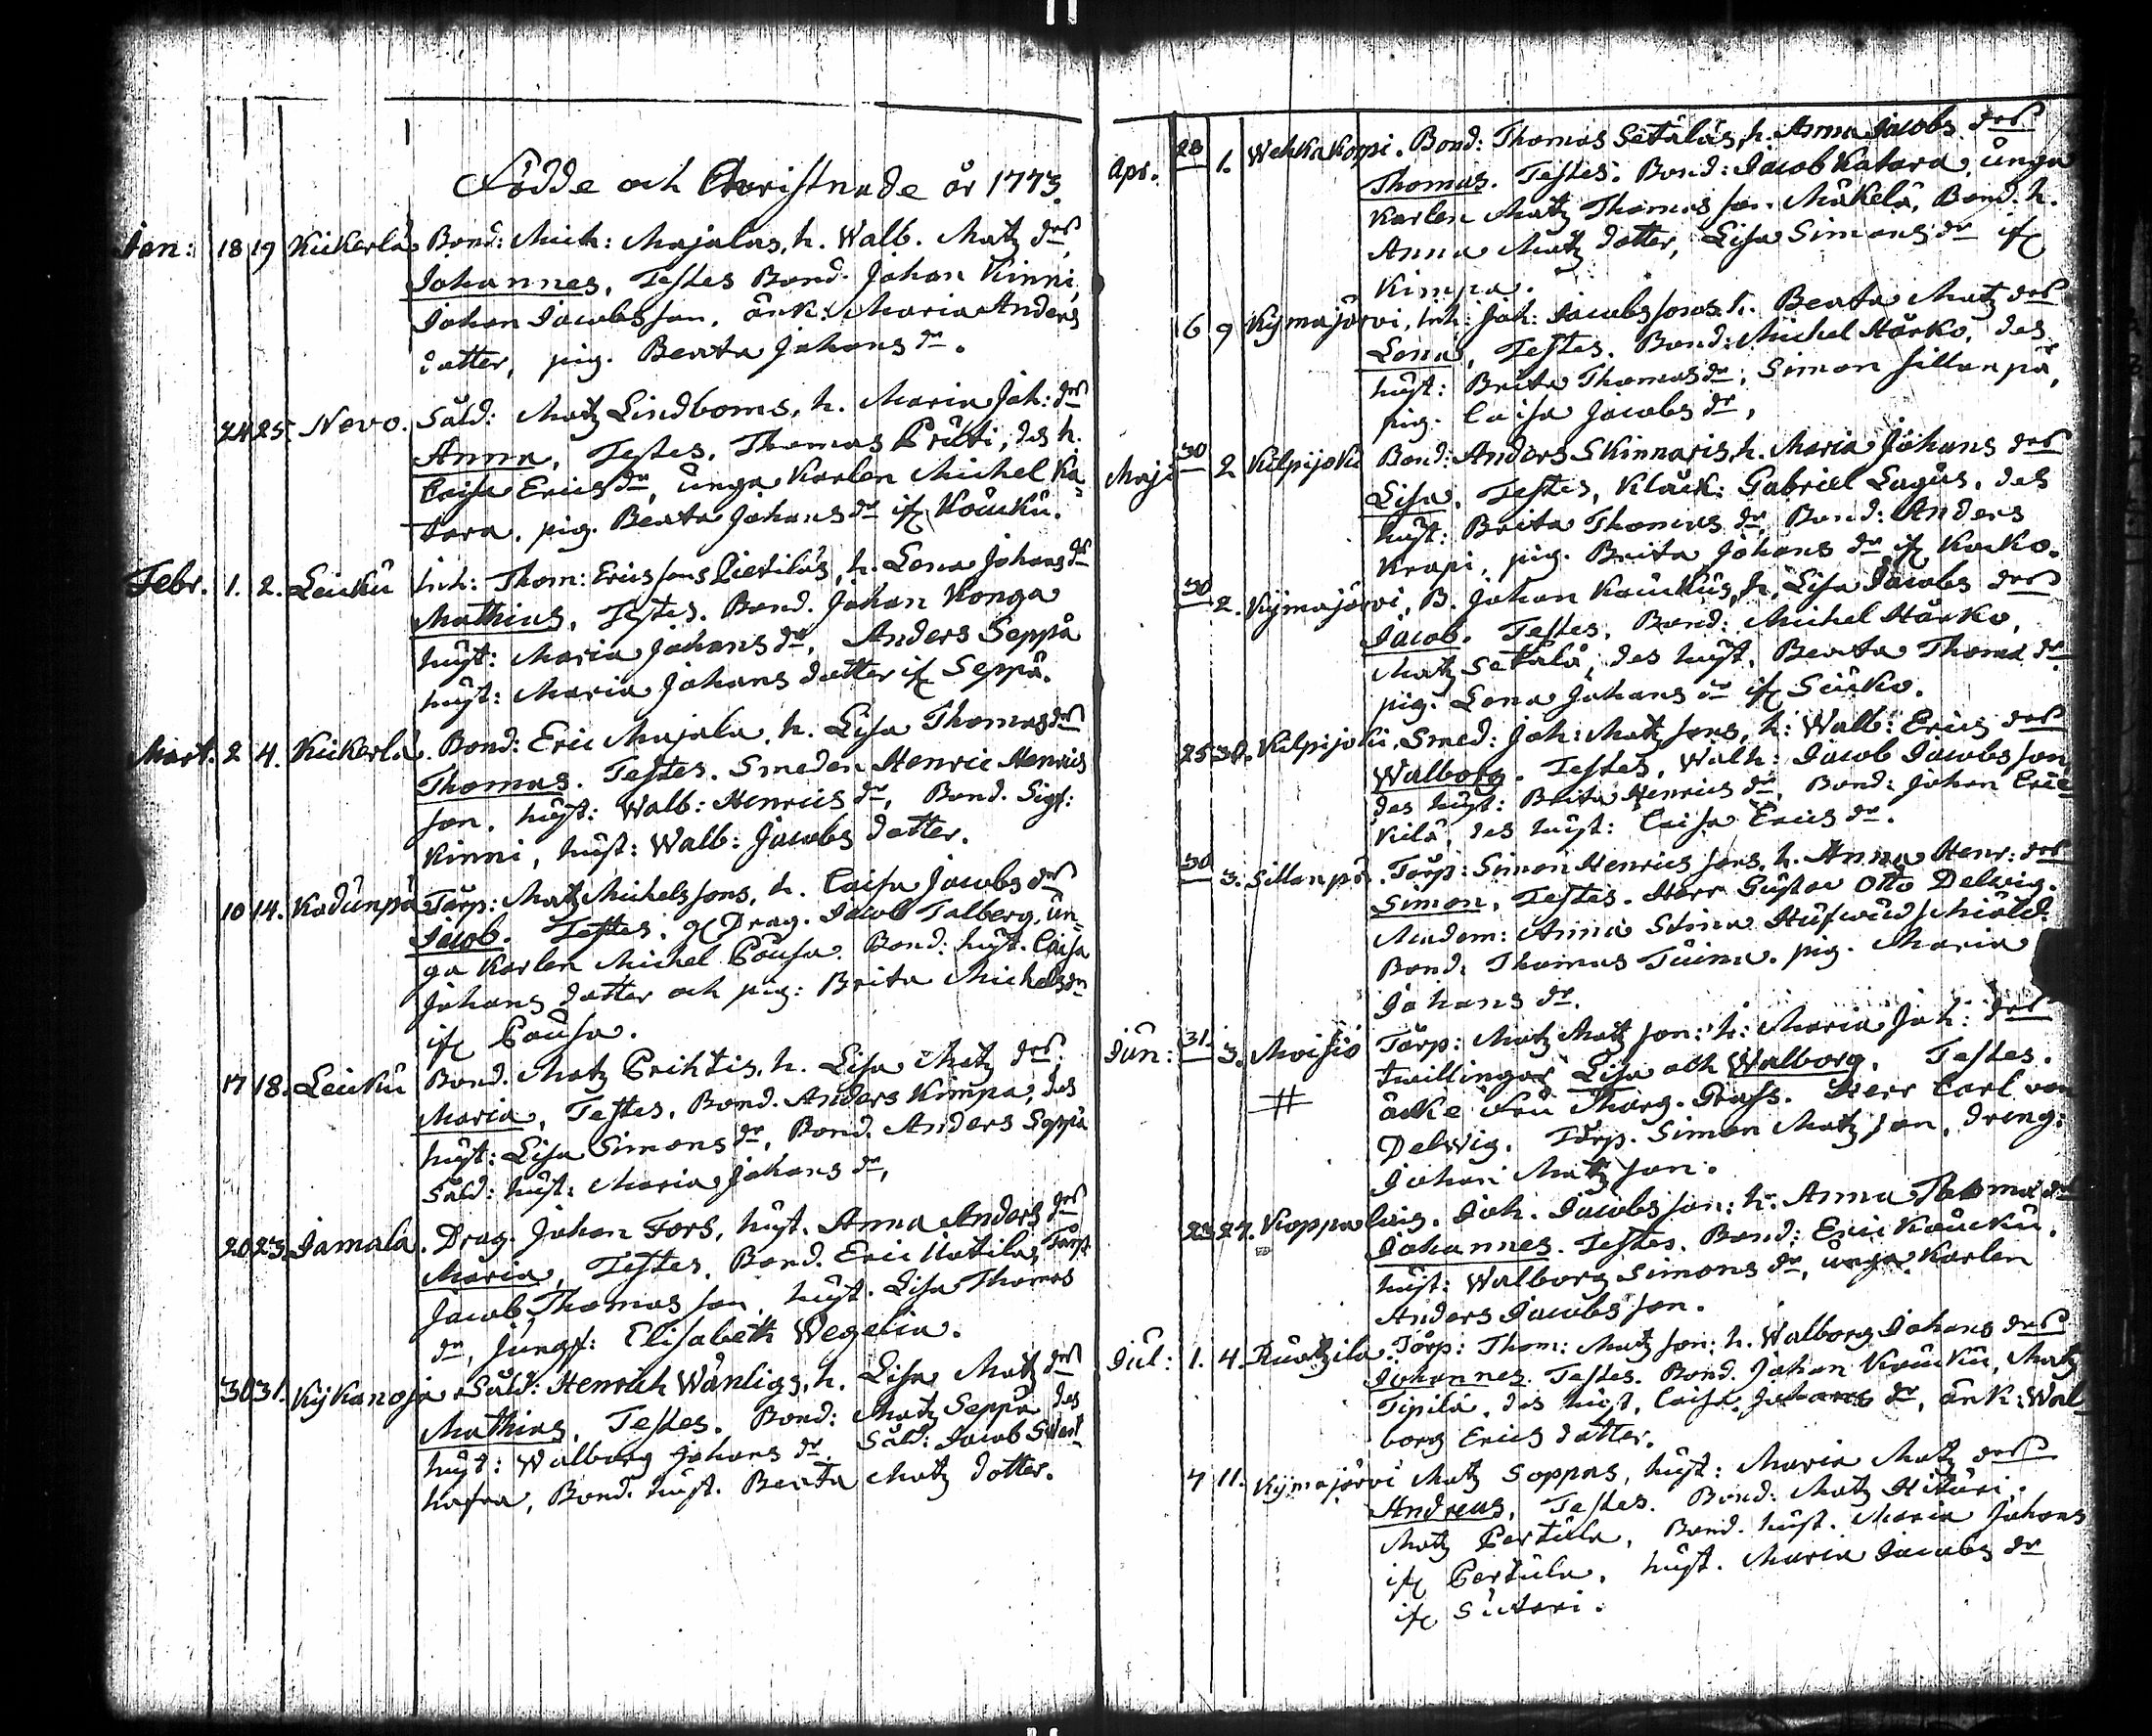 Födde och Christnade år 1773.
Jan: 18 19 Kickerlä Bond: Mich: Majalas, h. Walb. Matz drs
Johannes, Testes Bond. Johan Kinni,
Johan Jacobsson, änk: Maria Anders
datter, pig. Beata Johans dr.
24 25. Nevo. Såld: Matz Lindboms, h. Maria Joh: drs
Anna, Testes, Thomas Prüti, des h.
Caisa Erics dr, unga Karlen Michel Ka=
tara, pig. Beata Johans dr ifr Koucku.
Febr. 1. 2. Leickü Inh: Thom: Ericssons Pietiläs, h. Lena Johans drs
Mathias, Testes. Bond. Johan Konga
hust: Maria Johans dr, Anders Seppä
hust: Maria Johans datter ifr Seppä.
Mart. 2 4. Kickerlä. Bond: Eric Majala, h. Lisa Thomas drs
Thomas. Testes. Smeden Henric Henrics
son, hust: Walb: Henrics dr, Bond. Sigf:
Kinni, hust: Walb: Jacobs datter.
10 14. Kadunpä Torp: Matz Michelssons, h. Caisa Jacobs drs
Jacob. Testes. Drag. Jacob Talberg, un=
ga Karlen Michel Pousa. Bond: hust. Caisa
Johans datter och pig: Brita Michels dr
ifr Pousa.
17 18. Leickü Bond. Matz Prihtis, h. Lisa Matz drs
Maria, Testes, Bond. Anders Kimpa, des
hust: Lisa Simons dr, Bond. Anders Seppä
Såld: hust: Maria Johans dr,
20 23. Jamala. Drag. Johan Fors, hust. Anna Anders drs
Maria, Testes, Bond. Eric Uotila, Torp.
Jacob Thomasson, hust. Lisa Thomas
dr, Jungf: Elisabeth Wegelia.
30 31. Kykanoja Såld: Henrich Wänligs, h. Lisa Matz drs
Mathias, Testes. Bond: Matz Seppä des
hust: Walborg Johans dr. Såld: Jacob
hafra, Bond. hust. Beata Matz dotter.
Apr. 28 1. Wehkakorpi. Bond: Thomas Setäläs, h. Anna Jacobs drs
Thomas. Testes. Bond: Jacob Katara, unga
Karlen Matz Thomas son Mäkelä, Bond. h.
Anna Matz dotter, Lisa Simons dr ifr
Kimpa.
6 9 Kijmajärvi, Inh: Joh: Jacobssons h. Beata Matz drs
Lena, Testes. Bond: Michel Härko, des
hust: Brita Thomas dr, Simon Sillanpä,
pig. Caisa Jacobs dr,
Maji 30 2 Kilpijoki Bond: Anders Skinnaris, h. Maria Johans drs
Lisa, Testes, Klåck: Gabriel Lagus, des
hust: Brita Thomas dr, Bond: Anders
Krapi, pig. Brita Johans dr ifr Kocko.
30 2. Kijmajärvi, B. Johan Kouckus, h. Lisa Jacobs drs
Jacob. Testes, Bond: Michel Härko,
Matz Setälä, des hust, Beata Thomas dr
pig. Lena Johans dr ifr Sücko.
25 30. Kilpijoki, Smed: Joh: Matzsons, h: Walb: Erics drs
Walborg. Testes, Walh: Jacob Jacobsson,
des hust: Brita Henrics dr, Bond: Johan Eric
kilä, des hust: Caisa Erics dr.
30 3. Sillanpä. Torp: Simon Henrics sons, h. Anna Henr: drs
Simon, Testes. Herr Gustav Otto Delwig.
Madem: Anna Stina Hufwudskiöld.
Bond. Thomas Tuima. pig. Maria
Johans dr.
Jun: 31. 3. Moisio Torp: Matz Matzson: h: Maria Joh: drs
# twillingar Lisa och Walborg. Testes.
äncke Fru Marg. Grass. Herr Carl von
Delwig. Torp. Simon Matzson, dreng:
Johan Matzson.
23 27. Koppala Joh. Jacobsson: h. Anna Thomas drs
Johannes. Testes. Bond: Eric Koucku.
hust: Walborg Simons dr, unga Karlen
Anders Jacobsson.
Jul: 1. 4. Ruotzila. Torp: Thom: Matzson: h. Walborg Johans drs
Johannes. Testes. Bond. Johan Koucku, Matz
Tipilä, des hust, Caisa Johans dr, änk: Wal=
borg Erics datter.
7 11. Kijmajärvi Matz Soppas, hust: Maria Matz drs
Andreas, Testes. Bond: Matz Hituri.
Matz Pertula, Bond. hust. Maria Johans
ifr Pertula, hust. Maria Jacobs dr
ifr Sutari.